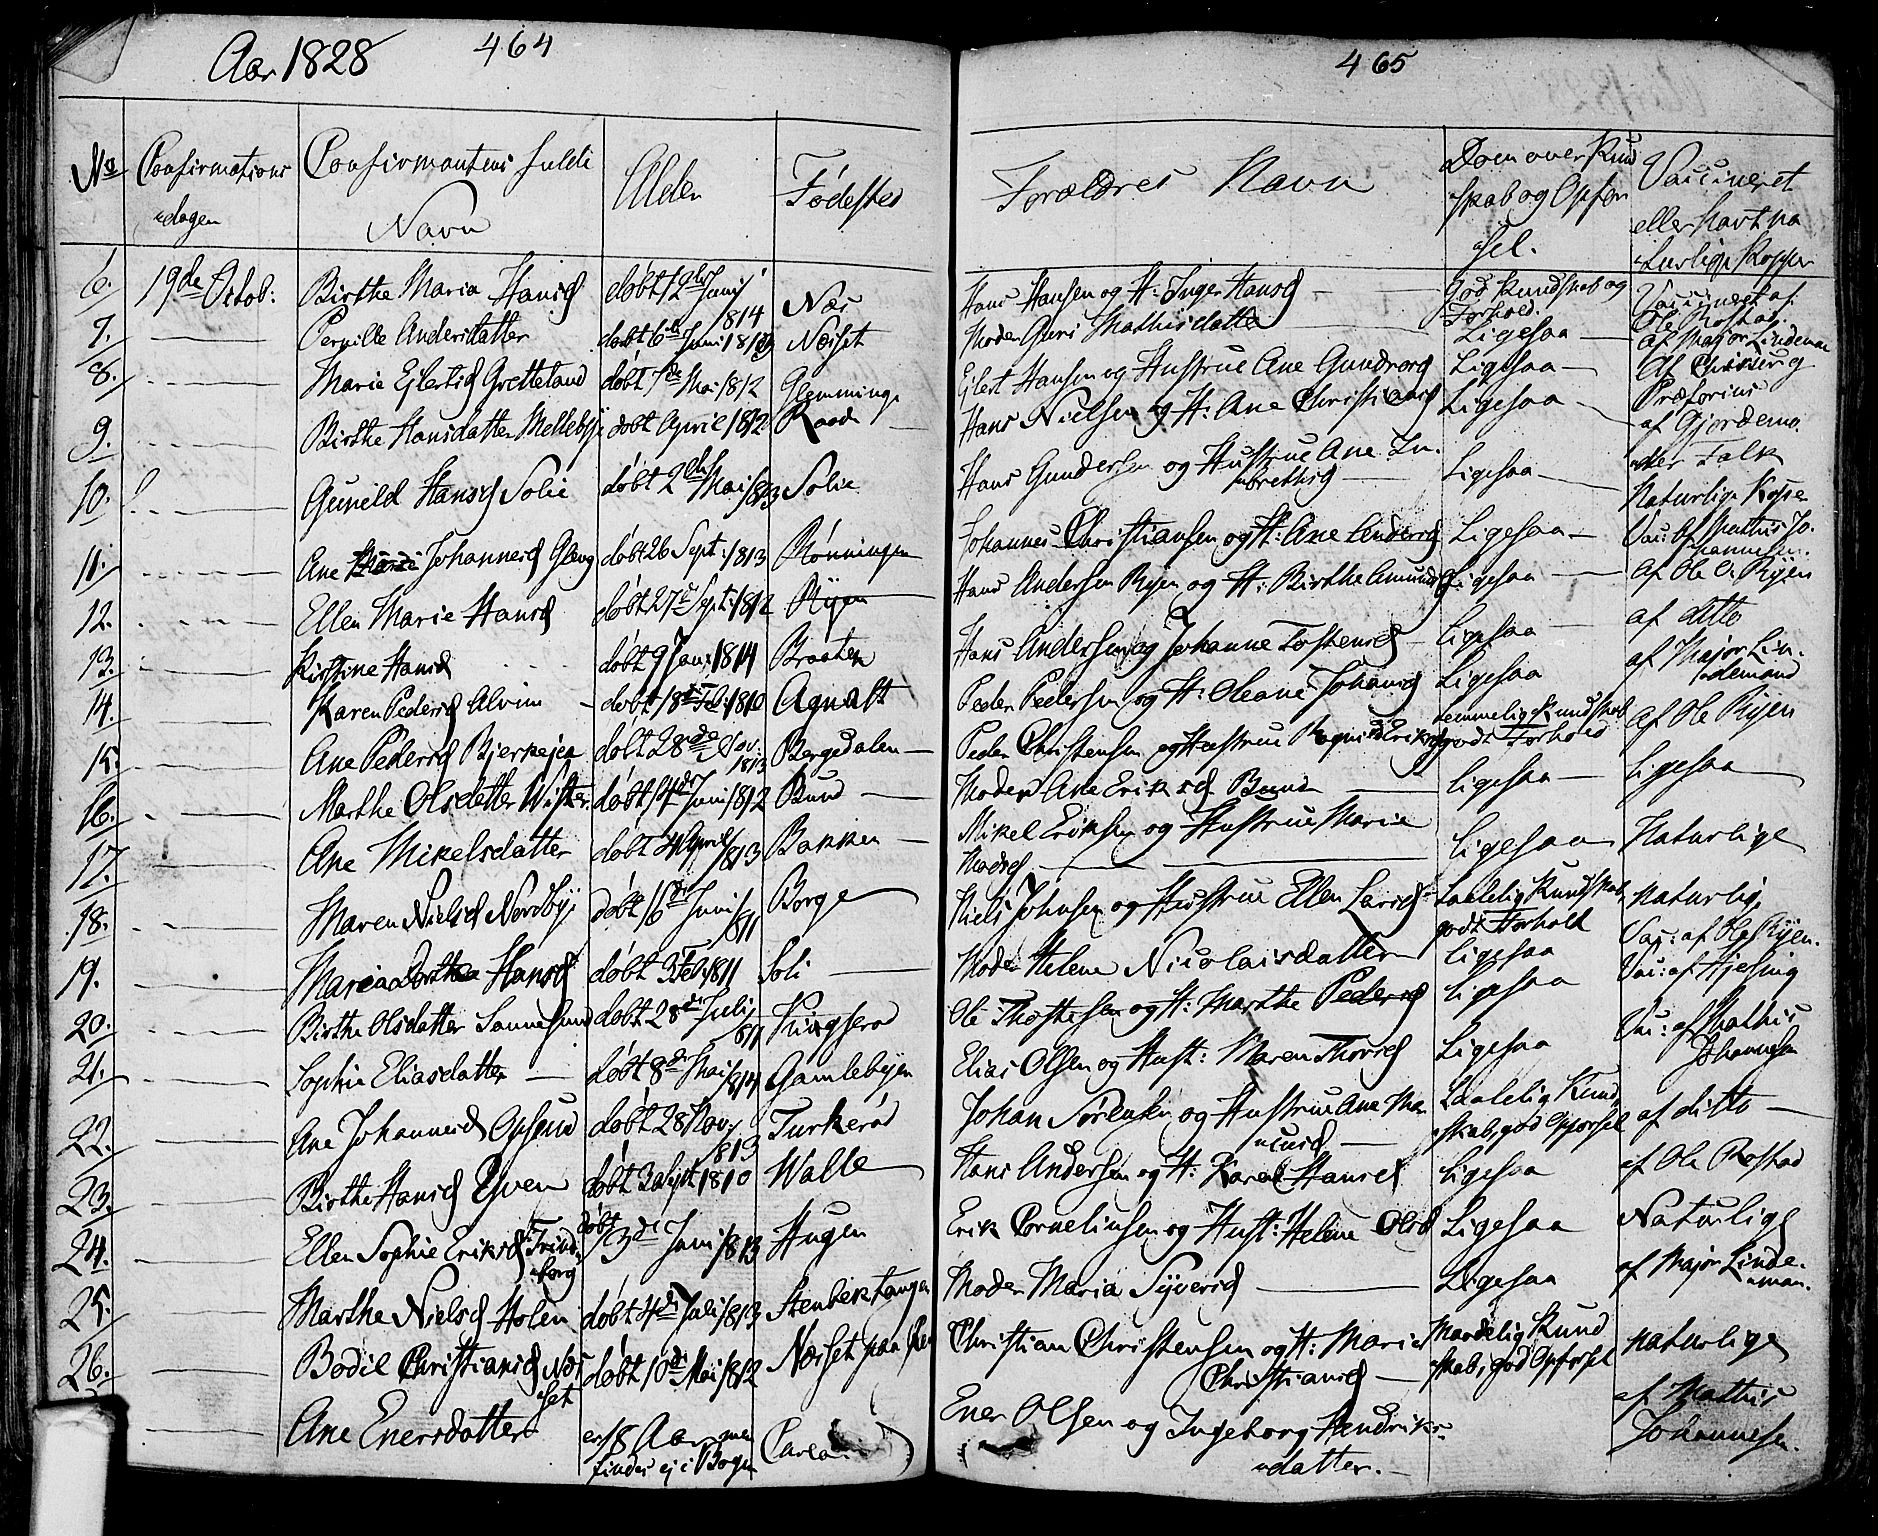 Aar 1828 464
No Confirmations dagen Confirmantens fulde Navn Alder Fødested
6. 19de Octob: Birthe Maria Hansd døbt 12de Juni 1814 Næs
7. Pernille Andersdatter døbt 6te Juni 1813 Næsset
8. Marie Ejlertsd Gretteland døbt 7de Mai 1812 Glemminge
9. Birthe Hansdatter Mellebye døbt April 1812 Raad
10. Gunild Hansd Solie døbt 2den Mai 1813 Solie
11. Ane Johannesd Gleng døbt 26 Sept: 1813 Rønningen
12. Ellen Marie Hansd døbt 27de Sept: 1812 Ryen
13. Kirstine Hansd døbt 9 Jan: 1814 Braaten
14. Karen Pedersd Alvim døbt 18de Feb: 1810 Agnalt
15. Ane Pedersd Bjerkejen døbt 28de Nov: 1813 Bergsdalen
16. Marthe Olsdatter døbt 14de Juni 1812 Bund
17. Ane Mikelsdatter døbt 4 April 1813 Bakken
18. Maren Nielsd Nordbye døbt 16de Juni 1811 Borge
19. Maria Dorthea Hansd døbt 3 Feb: 1811 Soli
20. Birthe Olsdatter Sannesund døbt 28de Juli 1811
21. Sophie Eliasdatter døbt 8de Mai 1814 Gamlebyen
22. Ane Johannesd Opsund døbt 28 Nov: 1813 Turkerød
23. Birthe Hansd Yven døbt Sept 1810 Walle
24. Ellen Sophie Eriksd døbt 13de Juni 1813 Hugen
25. Marthe Nielsd Holen døbt 4de Juli 1813 Stenbektangen
26. Bodil Christiansd Næsset døbt 10de Mai 1812 Næsset paa
Ane Enersdatter er 18 Aar men findes ej i Bogen
465
Forældres Navn Dom over Kundskab og Opførsel. Vaccineret eller havt naturlige Kopper
Hans Hansen og H: Inger Hansd God Kundskab og Forhold. Vaccineret af Ole Rostad.
Moder Guri Mathisdatter Ligesaa af Major Lindeman
Ejlert Hansen og Hustrue Ane Gundrorsd Ligesaa Af Chirurg Prætorius
Hans Nielsen og H: Ane Christiansd Ligesaa af Gjordemoder Falk
Hans Gundersen og Hustrue Ane Ligesaa Naturlige Kopper
Johannes Christiansen og H: Ane Andersd Ligesaa Vac: af Mathis Johannesen.
Hans Andersen Ryen og H: Birthe Amundsd Ligesaa af Ole O. Ryen
Hans Andersen og Johanne Torstensd Ligesaa af ditto
Peder Pedersen og H: Oleane Johansd Ligesaa af Major Lindemand
Peder Christensen og Hustrue Ragnild Eriksd temmelig Kundskab godt Forhold af Ole Ryen
Moder Ane Eriksd Bund Ligesaa Ligesaa
Mikel Eriksen og Hustrue Maria Madsd Ligesaa Naturlige
Niels Johnsen og Hustrue Ellen Larsd Taalelig Kundskab, godt Forhold naturlig,
Moder Helene Nicolaisdatter Ligesaa Vac: af Ole Ryen.
Ole Thostesen og H: Marthe Pedersd Ligesaa Vac: af Hjelsing
Elias Olsen og Hust: Maren Thorsd Ligesaa Vac: af Mathis Johannesen
Johan Sørensen og Hustrue Ane Taalelig Kundskab, god Opførsel af ditto
Hans Andersen og H: Karen Hansd Ligesaa af Ole Rostad
Erik Cornelinsen og Hust: Helene Olsd Ligesaa Naturlige
Moder Maria Syversd Ligesaa af Major Lindeman.
Christian Christensen og H: Maria Christiansd Maadelig Kundskab, god Opførsel naturlige
Ener Olsen og Ingeborg Hendriksdatter. af Mathis Johannesen.